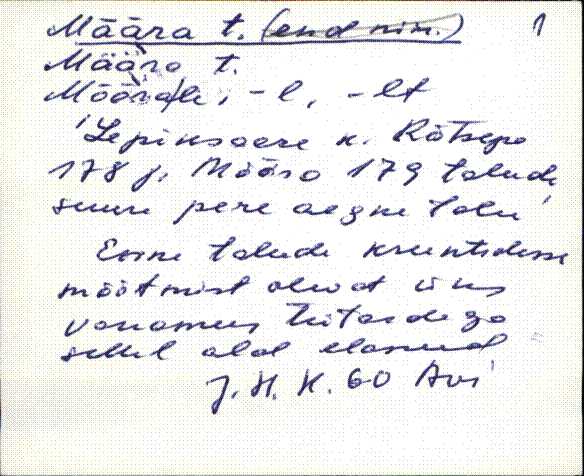 Määra t. (end nim.) 1
Määra t.
Määrale, -l, -lt
'Lepiksaare k. Rätsepa
178 j. Määra 179 talude
suure pere aegne talu'
Enne talude kruntidesse
mõõtmist olevat üks
vanamees tütardega
sellel alal elanud
J. H. K. 60 Avi